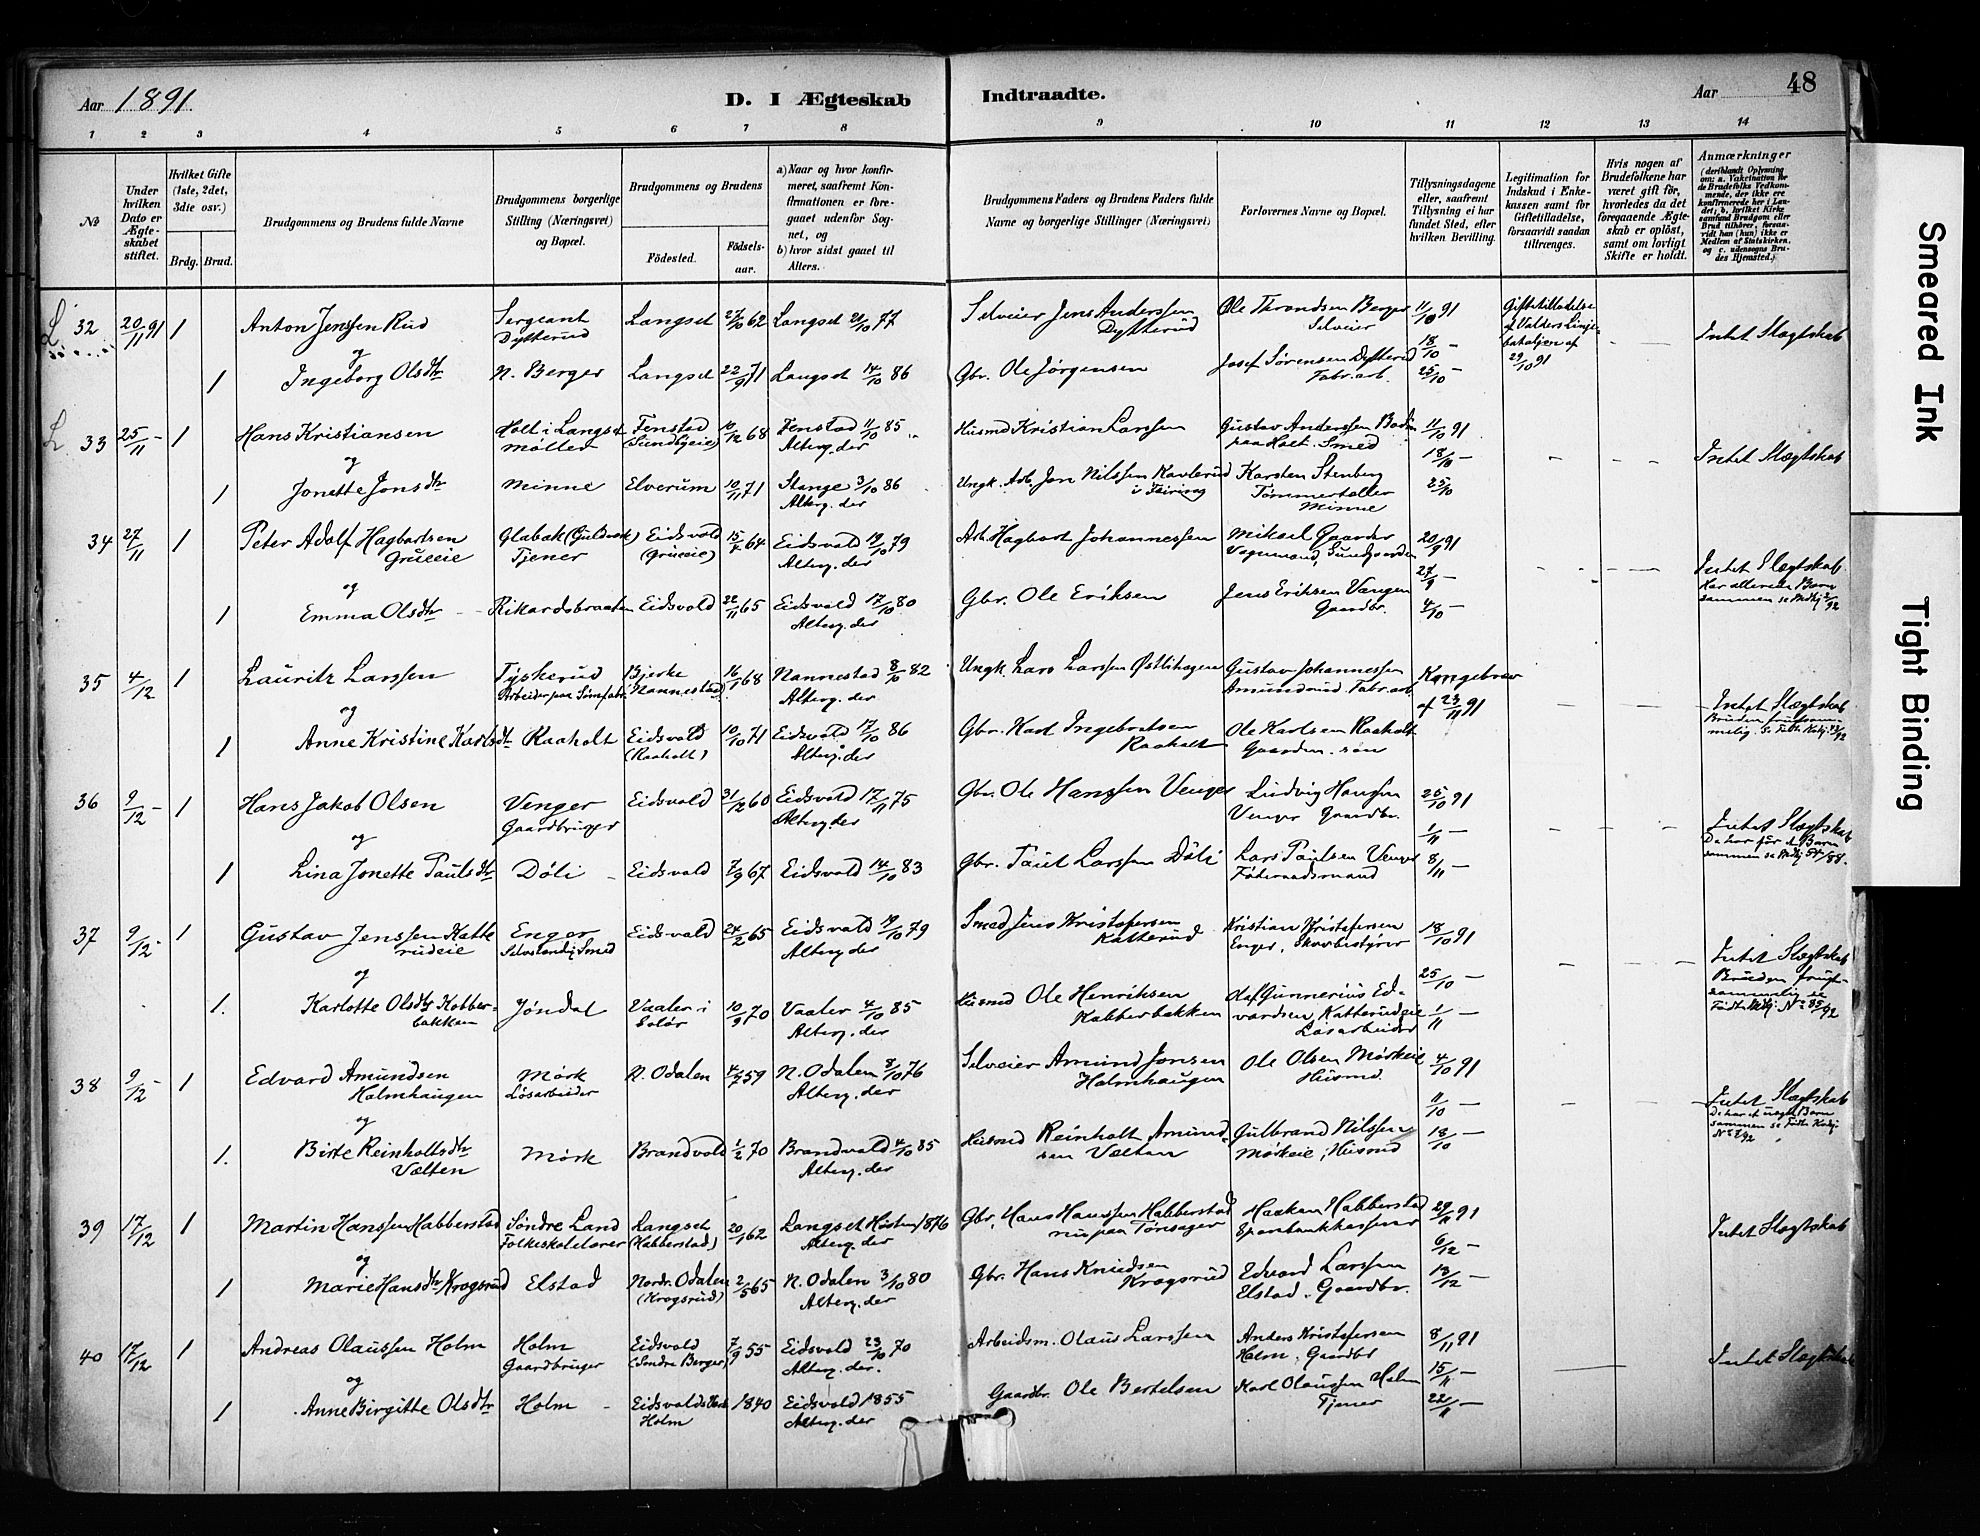 Aar 1891.
D. I Ægteskab
Indtraadte.
Aar
48
1 2 3 4 5 6 7 8 9 10 11 12 13 14
№
Under hvilken Dato er Ægteskabet stiftet.
Hvilket Gifte (1ste, 2det, 3die osv.)
Brdg. Brud.
Brudgommens og Brudens fulde Navne
Brudgommens borgerlige Stilling (Næringsvei) og Bopæl.
Brudgommens og Brudens
Födested.
Födsels-aar.
a) Naar og hvor konfirmeret, saafremt Konfirmationen er foregaaet udenfor Sognet, og
b) hvor sidst gaaet til Alters.
Brudgommens Faders og Brudens Faders fulde Navne og borgerlige Stillinger (Næringsvei)
Forlovernes Navne og Bopæl.
Tillysningsdagene eller, saafremt Tillysning ei har fundet Sted, efter hvilken Bevilling.
Legitimation for Indskud i Enkekassen samt for Giftetilladelse, forsaavidt saadan tiltrænges.
Hvis nogen af Brudefolkene har været gift för, hvorledes da det foregaaende Ægteskab er oplöst, samt om lovligt Skifte er holdt.
Anmærkninger
L. 32 20/11 91 1 Anton Jenssen Rud Sergeant Dytterud Langset 27/10 62 Langset 21/10 77 Selveier Jens Anderssen Dytterud Ole Throndsen Berger Selveier 11/10 91 Giftetilladelse af Valders Linjebataljon af 29/10 91 Intet Slægtskab
og
18/10 —
1 Ingeborg Olsdtr N. Berger Langset 22/9 71 Langset 14/10 86 Gbr. Ole Jørgensen Josef Sørensen Dytterud Fabr.arb. 25/10 —
L 33 25/11 - 1 Hans Kristiansen Holt i Langset møller Fenstad (Sundbyeie) 10/12 68 Fenstad 11/10 85 Alterg. der Husmd Kristian Larssen Gustav Anderssen paa Holt. Smed 11/10 91 Intet Slægtskab
og
18/10 —
1 Jonette Jonsdtr Minne Elverum 10/11 71 Stange 3/10 86 Alterg. der Ungk. Arb. Jon Nilssen i Feiring Karsten Stenberg Tømmertæller Minne 25/10
34 27/11 1 Peter Adolf Hagbartsen Grueeie Glabak (Guldverk) Tjener Eidsvold (Grueeie) 15/4 64 Eidsvold 19/10 79 Alterg. der Arb. Hagbart Johannessen Mikael Gaarder Vognmand, Sundgaarden 20/9 91 Intet Slægtskab. Har allerede Barn sammen
og
27/9 —
1 Emma Olsdtr Rikardsbraaten Eidsvold 22/11 65 Eidsvold 17/10 80 Alterg. der Gbr. Ole Eriksen Jens Eriksen Vængen Gaardbr. 4/10 —
35 4/12 1 Lauritz Larssen Tyskerud Arbeider paa Bjerke i Nannestad 16/1 68 Nannestad 8/10 82 Alterg. der Ungk. Lars Larssen Østlihagen Gustav Johannessen Amundrud. Fabr.arb. Kongebrev af 23/11 91 Intet Slægtskab Bruden frugtsommelig.
og
1 Anne Kristine Karlsdtr Raaholt Eidsvold (Raaholt) 10/10 71 Eidsvold 17/10 86 Alterg. der Gbr. Karl Ingebretsen Raaholt Ole Karlsen Raaholt Gaardm. søn
36 9/12 - 1 Hans Jakob Olsen Venger Gaardbruger Eidsvold 31/12 60 Eidsvold 17/11 75 Alterg. der Gbr. Ole Hanssen Venger Ludvig Hansen Venger Gaardbr. 25/10 91 Intet Slægtskab De har før et Barn sammen
og
1/11 —
1 Lina Jonette Paulsdtr Döli - Eidsvold 7/9 67 Eidsvold 14/10 83 Gbr. Paul Larssen Döli Lars Paulsen Venger Föderaadsmand 8/11 —
37 9/12 - 1 Gustav Jenssen Katterudeie Enger Selvstændig Smed Eidsvold 24/2 65 Eidsvold 19/10 79 Alterg. der Smed Jens Kristofersen Katterud Kristian Kristofersen Enger, Skovbestyrer 18/10 91 Intet Slægtskab Bruden frugtsommelig
og
25/10 —
1. Karlotte Olsdtr Kobberbakken Jøndal Vaaler i Solør 10/9 70 Vaaler 4/10 85 Alterg. der Husmd Ole Henriksen Kobberbakken Olaf Gunnerius Edvardsen Katterudeie Løsarbeider 1/11 —
38 9/12 - 1 Edvard Amundsen Holmhaugen Mørk Løsarbeider N. Odalen 4/7 59 N. Odalen 8/10 76 Alterg. der Selveier Amund Jonsen Holmhaugen Ole Olsen Mørkeie Husmd. 4/10 91 Intet Slægtskab De har et uægte Barn sammen
og
11/10 —
1. Birte Reinholtsdtr Vælten Mørk Brandvold 1/2 70 Brandvold 4/10 85 Alterg. der Husmd Reinholt Amundsen Vælten Gulbrand Nilssen Mørkeie, Husmd 18/10 —
39 17/12 1 Martin Hanssen Habberstad Søndre Land Folkeskolelærer Langset (Habberstad) 20/1 62 Langset Høsten 1876 Alterg. der Gbr. Hans Hanssen Habberstad nu paa Tønsager Haaken Habberstad Sparebankkasserer 29/11 91 Intet Slægtskab
og
6/12 —
1 Marie Hansdtr Krogsrud Elstad Nordr. Odalen (Krogsrud) 2/5 65 N. Odalen 3/10 80 Alterg. der Gbr. Hans Knudsen Krogsrud Edvard Larssen Elstad. Gaardbr. 13/12 —
40 17/12 1 Andreas Olaussen Holm Holm Gaardbruger Eidsvold (Søndre Berger) 7/9 55 Eidsvold 23/10 70 Alterg. der. Arbeidsm. Olaus Larssen Anders Kristofersen Holm. Gaardbr 8/11 91 Intet Slægtskab
og
15/11 —
1 Anne Birgitte Olsdtr Holm - Eidsvolds Holm 1840 Eidsvold 1855 Alterg. der Gaardbr. Ole Bertelsen Karl Olaussen Holm Tjener 22/11 —
Smeared Ink
Tight Binding